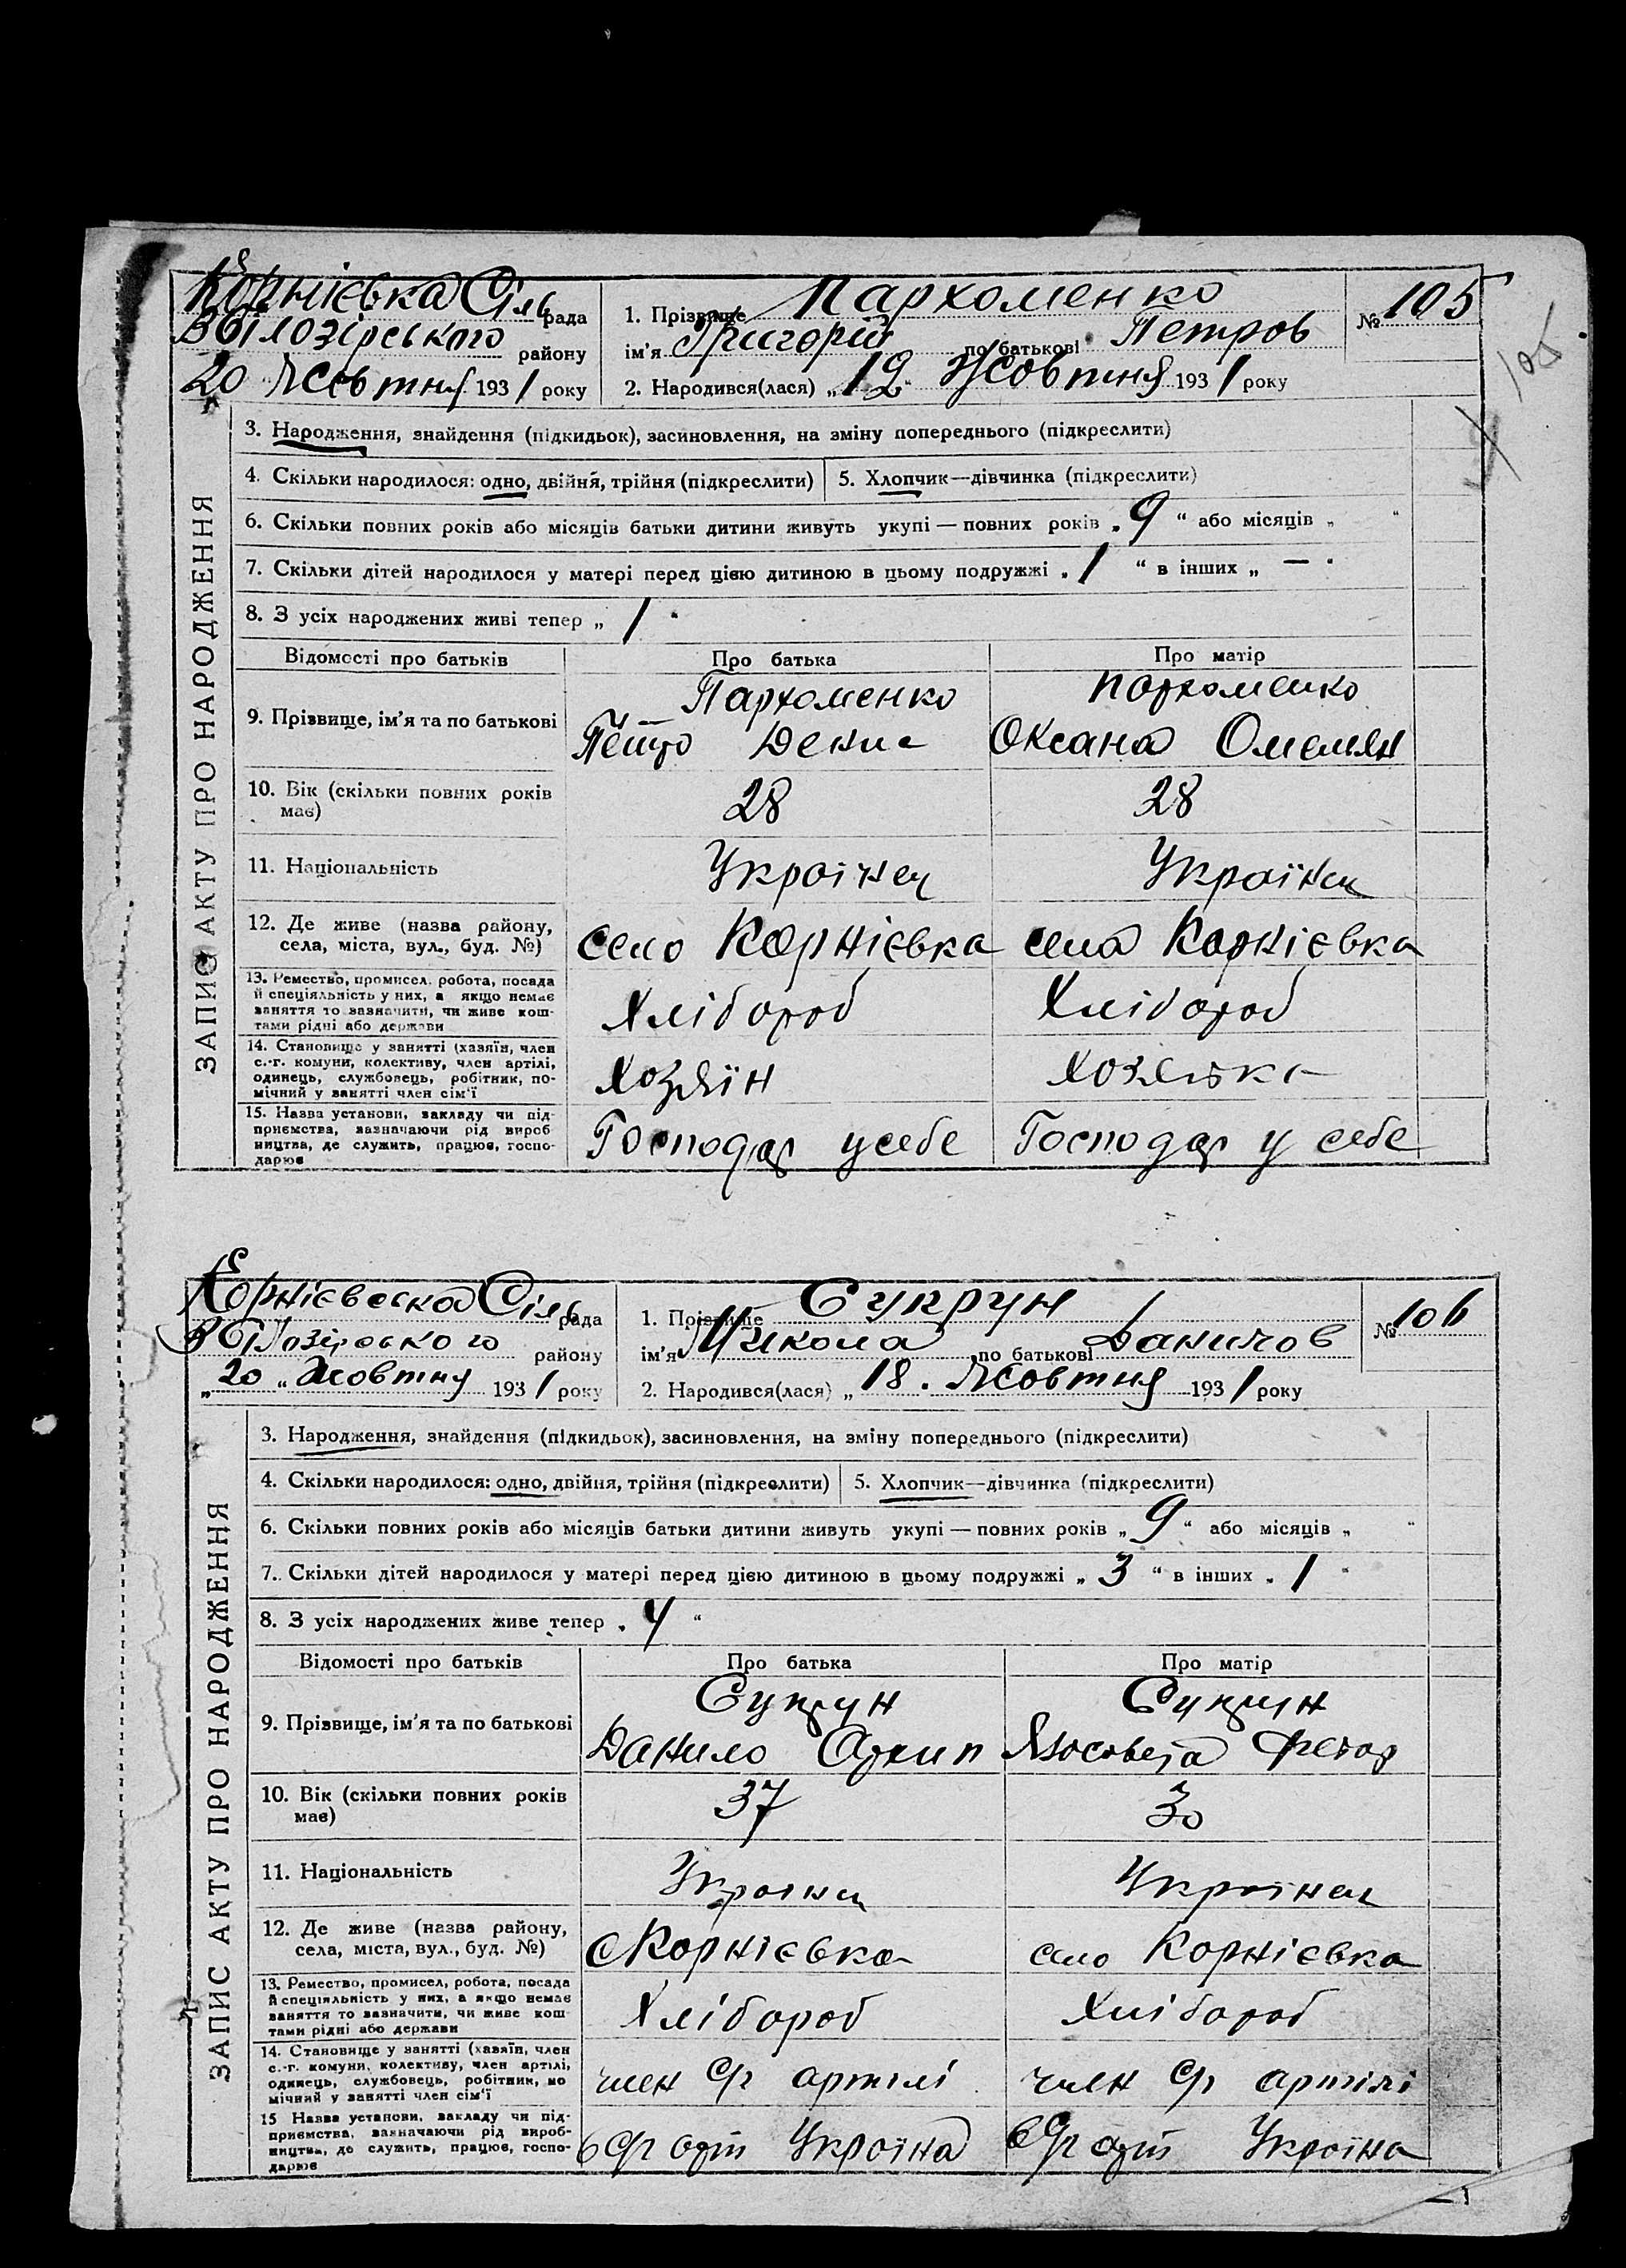 Корнієвка Сіль рада
В Білозірського району
20 Жовтня 1931 року
1. Прізвище Пархоменко
ім'я Григорій по батькові Петров
2. Народився(лася) „12“ Жовтня 1931 року
№ 105
105
ЗАПИС АКТУ ПРО НАРОДЖЕННЯ
3. Народження, знайдення (підкидьок), засиновлення, на зміну попереднього (підкреслити)
4. Скільки народилося: одно, двійня, трійня (підкреслити) 5. Хлопчик—дівчинка (підкреслити)
6. Скільки повних років або місяців батьки дитини живуть укупі — повних років „ 9 “ або місяців „ “
7. Скільки дітей народилося у матері перед цією дитиною в цьому подружжі „ 1 “ в інших „ — “
8. З усіх народжених живі тепер „ 1 “
Відомості про батьків Про батька Про матір
9. Прізвище, ім'я та по батькові
Пархоменко
Петро Денис
Пархоменко
Оксана Омелян
10. Вік (скільки повних років має)
28 28
11. Національність
Українец Українец
12. Де живе (назва району,
села, міста, вул., буд. №)
село Корнієвка села Корнієвка
13. Ремество, промисел, робота, посада
й спеціяльність у них, а якщо немає
заняття то зазначити, чи живе кош-
тами рідні або держави
Хлібороб Хлібороб
14. Становище у занятті (хазяїн, член
с.-г. комуни, колективу, член артілі,
одинець, службовець, робітник, по-
мічний у занятті член сім'ї
Хозяїн Хозяйка
15. Назва установи, закладу чи під-
приємства, зазначаючи рід вироб
ництва, де служить, працює, госпо-
дарює
Господар у себе Господар у себе
Корнієвська Сіль рада
В Білозірського району
„20“ Жовтня 1931 року
1. Прізвище Супрун
ім'я Микола по батькові Данилов
2. Народився(лася) „18. Жовтня 1931 року
№ 106
ЗАПИС АКТУ ПРО НАРОДЖЕННЯ
3. Народження, знайдення (підкидьок), засиновлення, на зміну попереднього (підкреслити)
4. Скільки народилося: одно, двійня, трійня (підкреслити) 5. Хлопчик—дівчинка (підкреслити)
6. Скільки повних років або місяців батьки дитини живуть укупі — повних років „ 9 “ або місяців „ “
7. Скільки дітей народилося у матері перед цією дитиною в цьому подружжі „ 3 “ в інших „ 1 “
8. З усіх народжених живе тепер „ 4 “
Відомості про батьків Про батька Про матір
9. Прізвище, ім'я та по батькові
Супрун
Данило Архип
Супрун
Федор
10. Вік (скільки повних років
має)
37 30
11. Національність
Українец Українец
12. Де живе (назва району,
села, міста, вул., буд. №)
с Корнієвка село Корнієвка
13. Ремество, промисел, робота, посада
й спеціяльність у них, а якщо немає
заняття то зазначити, чи живе кош
тами рідні або держави
Хлібороб Хлібороб
14. Становище у занятті (хазяїн, член
с.-г. комуни, колективу, член артілі,
одинець, службовець, робітник, по
мічний у занятті член сім'ї
член с/г артілі член с/г артілі
15 Назва установи, закладу чи під-
приємства, зазначаючи рід вироб-
ництва, де служить, працює, госпо-
дарює
в с/г арт Україна в с/г арт Україна